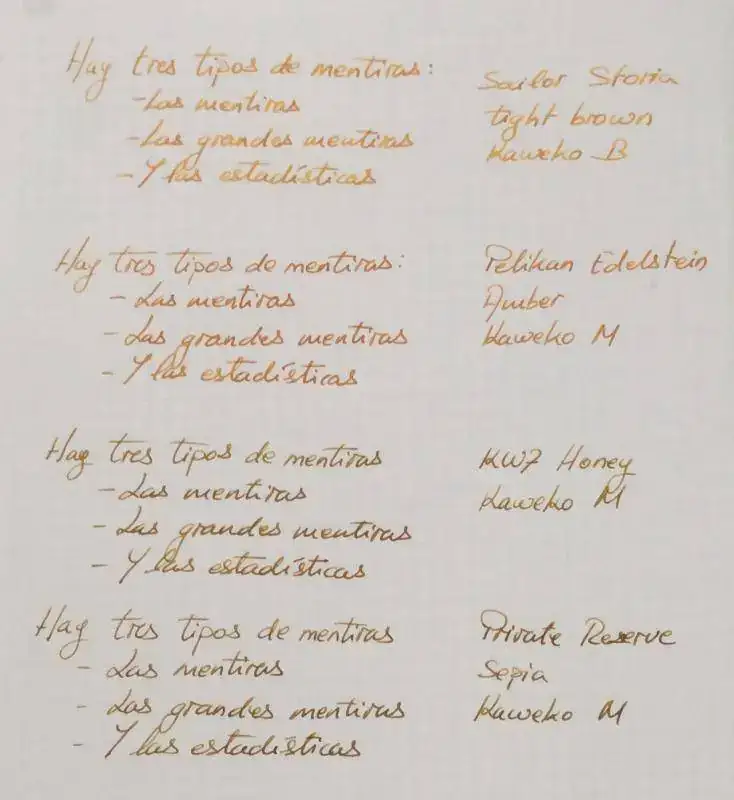 Hay tres tipos de mentiras:
- Las mentiras
- Las grandes mentiras
- Y las estadísticas
Sailor Storia
Light brown
Kaweko B
Hay tres tipos de mentiras:
- Las mentiras
- Las grandes mentiras
- Y las estadísticas
Pelikan Edelstein
Amber
Kaweko M
Hay tres tipos de mentiras
- Las mentiras
- Las grandes mentiras
- Y las estadísticas
KWZ Honey
Kaweko M
Hay tres tipos de mentiras
- Las mentiras
- Las grandes mentiras
- Y las estadísticas
Private Reserve
Sepia
Kaweko M